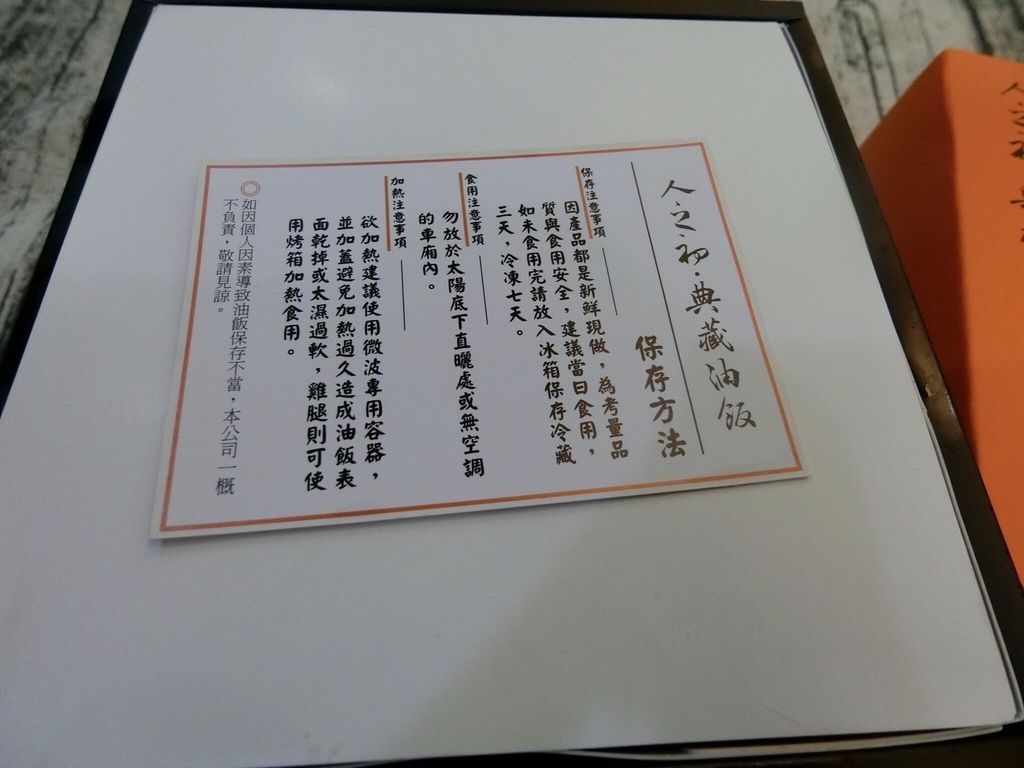 人之初·典藏油飯
保存方法
保存注意事項
因產品都是新鮮現做，為考量品
質與食用安全，建議當日食用，
如未食用完請放入冰箱保存冷藏
三天，冷凍七天。
食用注意事項
勿放於太陽底下直曬處或無空調
的車廂內。
加熱注意事項
欲加熱建議使用微波專用容器，
並加蓋避免加熱過久造成油飯表
面乾掉或太濕過軟，雞腿則可使
用烤箱加熱食用。
◎如因個人因素導致油飯保存不當，本公司一概
不負責，敬請見諒。
人之初